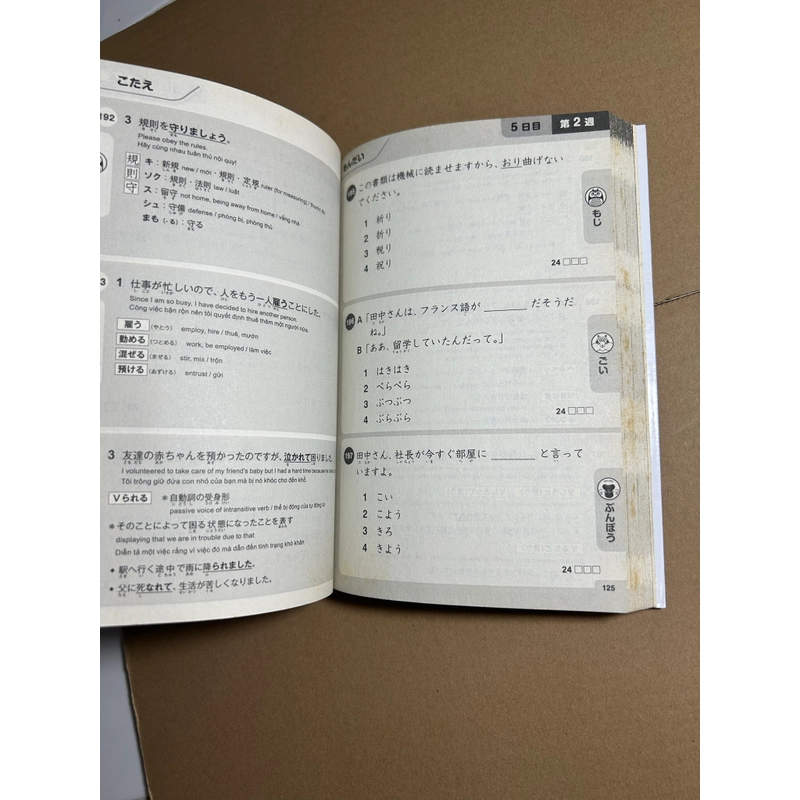 こたえ
192
3 規則を守りましょう。
Please obey the rules.
Hãy cùng nhau tuân thủ nội quy!
規 キ:新規 new / mới・規則・定規 ruler (for measuring) / thước đo
則 ソク:規則・法則 law / luật
守 ス:留守 not home, being away from home / vắng nhà
シュ:守備 defense / phòng bị, phòng thủ
まも(-る):守る
3
1 仕事が忙しいので、人をもう一人雇うことにした。
Since I am so busy, I have decided to hire another person.
Công việc bận rộn nên tôi quyết định thuê thêm một người nữa.
雇う (やとう) employ, hire / thuê, mướn
勤める (つとめる) work, be employed / làm việc
混ぜる (まぜる) stir, mix / trộn
預ける (あずける) entrust / gửi
3 友達の赤ちゃんを預かったのですが、泣かれて困りました。
I volunteered to take care of my friend's baby but I had a hard time because
Tôi trông giữ đứa con nhỏ của bạn mà bị nó khóc cho đến khổ.
Vられる *自動詞の受身形
passive voice of intransitive verb / thể bị động của tự động từ
*そのことによって困る状態になったことを表す
displaying that we are in trouble due to that
Diễn tả một việc rằng vì việc đó mà dẫn đến tình trạng khó khăn
• 駅へ行く途中で雨に降られました。
• 父に死なれて、生活が苦しくなりました。
5日目 第2週
もんだい
この書類は機械に読ませますから、おり曲げない
でください。
1 祈り
2 折り
3 税り
4 祝り
24 □□□
もじ
196 A「田中さんは、フランス語が ______ だそうだ
ね。」
B「ああ、留学していたんだって。」
1 はきはき
2 ぺらぺら
3 ぶつぶつ
4 ぶらぶら
24 □□□
ごい
197 田中さん、社長が今すぐ部屋に ______ と言って
いますよ。
1 こい
2 こよう
3 きろ
4 きよう
24 □□□
ぶんぽう
125